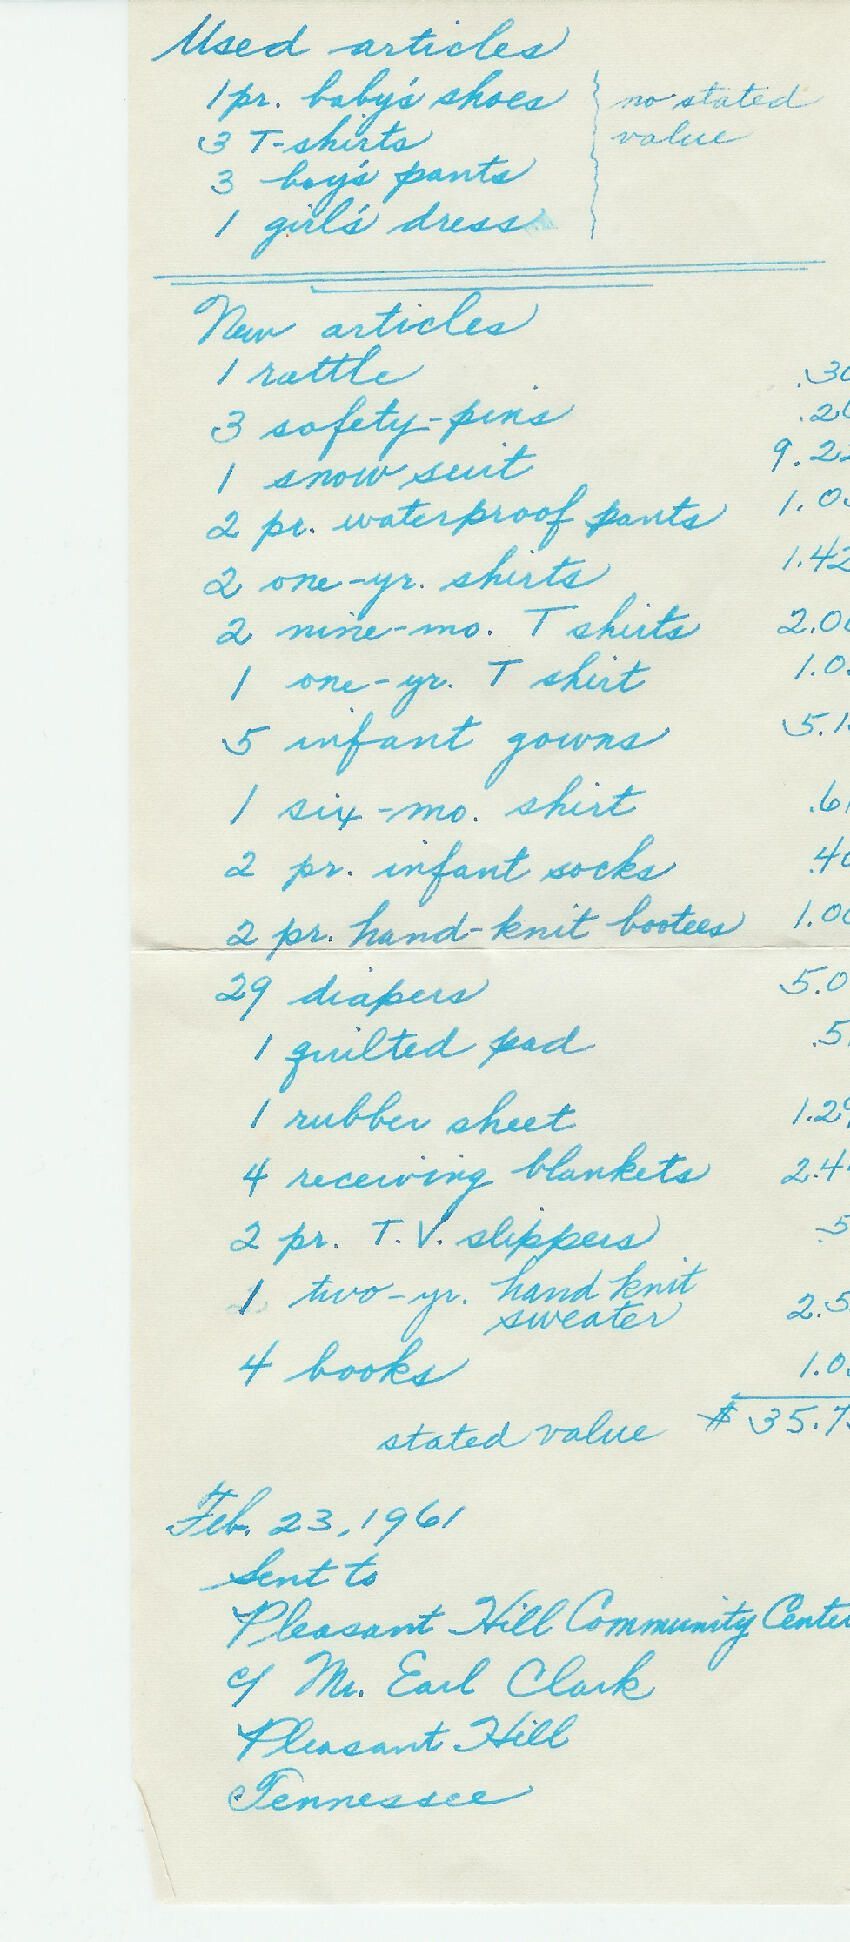 Used articles
1 pr. baby's shoes
no stated
3 T-shirts
value
3 boy's pants
1 girl's dress
New articles
1 rattle .30
3 safety-pins .20
1 snow suit 9.22
2 pr. waterproof pants 1.0
2 one-yr. shirts 1.42
2 nine-mo. T shirts 2.00
1 one-yr. T shirt 1.0
5 infant gowns 5.1
1 six-mo. shirt .61
2 pr. infant socks .40
2 pr. hand-knit bootees 1.00
29 diapers 5.0
1 quilted pad .5
1 rubber sheet 1.29
4 receiving blankets 2.4
2 pr. T.V. slippers .5
1 two-yr. hand knit
sweater 2.5
4 books 1.0
stated value $35.7
Feb. 23, 1961
Sent to
Pleasant Hill Community Center
c/ Mr. Earl Clark
Pleasant Hill
Tennessee